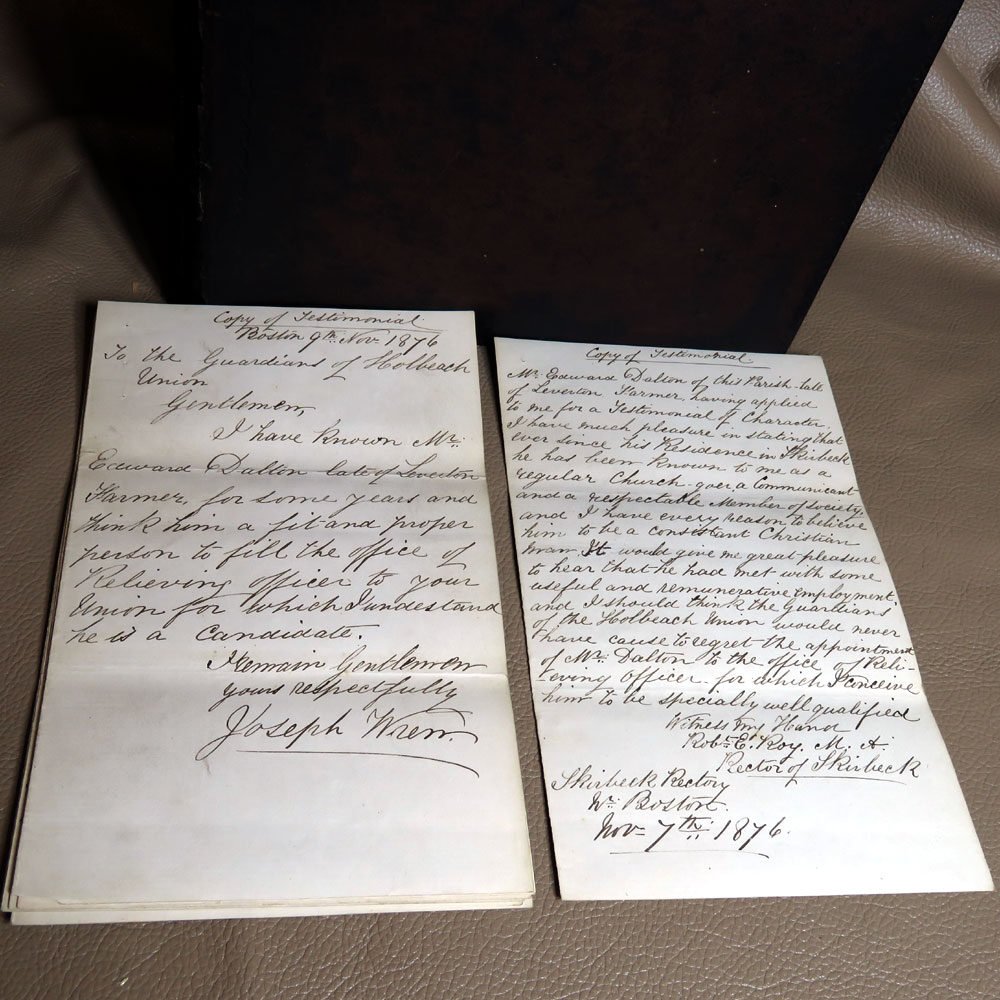 Copy of Testimonial
Boston 9th Nov 1876
To the Guardians of Holbeach
Union
Gentlemen,
I have known Mr.
Edward Dalton late of Leverton
Farmer, for some years and
think him a fit and proper
person to fill the office of
Relieving officer to your
Union for which I undestand
he is a Candidate.
I remain Gentlemen
yours respectfully
Joseph Wren.
Copy of Testimonial
Mr. Edward Dalton of this Parish late
of Leverton Farmer, having applied
to me for a Testimonial of Character,
I have much pleasure in stating that
ever since his Residence in Skirbeck
he has been known to me as a
regular Church-goer a Communicant
and a respectable Member of society,
and I have every reason to believe
him to be a consistant Christian
man. It would give me great pleasure
to hear that he had met with some
useful and remunerative employment,
and I should think the Guardians
of the Holbeach Union would never
have cause to regret the appointment
of Mr. Dalton to the office of Reli-
-eving Officer for which I conceive
him to be specially well qualified
Witness my Hand
Robt. E. Roy, M. A.
Rector of Skirbeck
Skirbeck Rectory
Nr. Boston.
Nov 7th 1876.